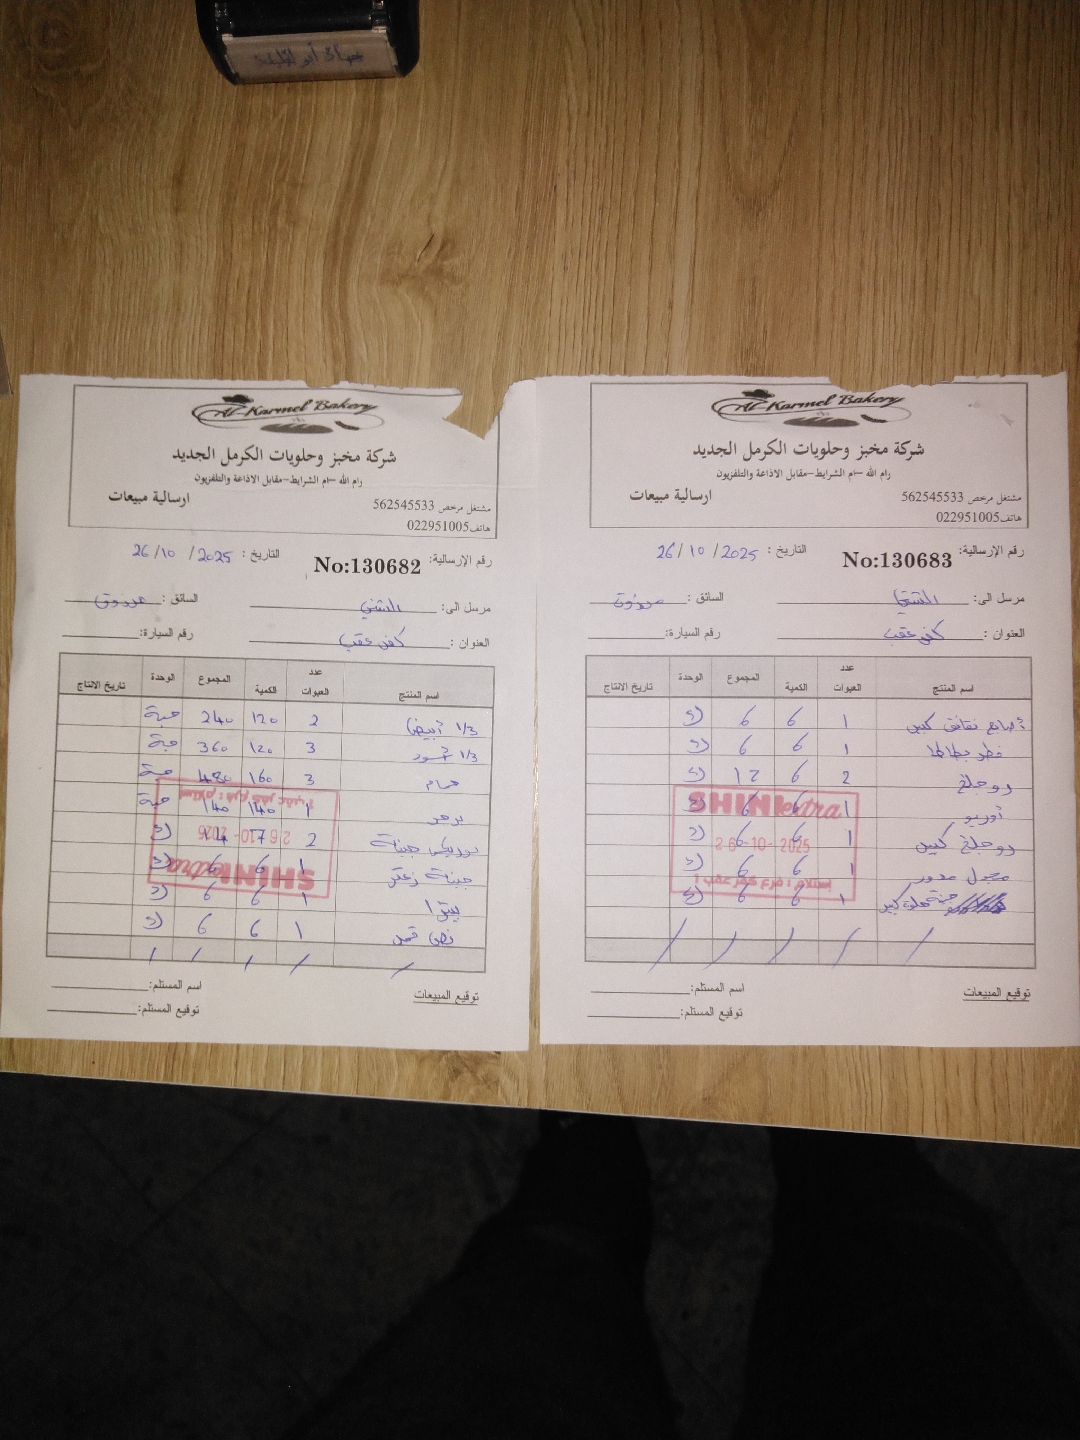 Al-Karmel Bakery
شركة مخبز وحلويات الكرمل الجديد
رام الله -ام الشرايط-مقابل الاذاعة والتلفزيون
مشتغل مرخص 562545533
ارسالية مبيعات
هاتف022951005
رقم الإرسالية: No:130682
التاريخ : 26/10/2025
مرسل الى:
السائق :
العنوان : كفر عقب
رقم السيارة:
اسم المنتج عدد العبوات الكمية المجموع الوحدة تاريخ الانتاج
1/3 أبيض 2 120 240 حبة
1/3 أسود 3 120 360 حبة
حمام 3 160 480 حبة
برجر 1 140 140 حبة
جبنة 2 7 14 ك
جبنة زعتر 1 6 6 ك
بيتزا 1 6 6 ك
1 6 6 ك
SHINI extra
26-10-2025
استلام : فرع كفر عقب
توقيع المبيعات
اسم المستلم:
توقيع المستلم:
Al-Karmel Bakery
شركة مخبز وحلويات الكرمل الجديد
رام الله -ام الشرايط-مقابل الاذاعة والتلفزيون
مشتغل مرخص 562545533
ارسالية مبيعات
هاتف022951005
رقم الإرسالية: No:130683
التاريخ : 26/10/2025
مرسل الى:
السائق :
العنوان : كفر عقب
رقم السيارة:
اسم المنتج عدد العبوات الكمية المجموع الوحدة تاريخ الانتاج
أصابع نقانق كبير 1 6 6 ك
فطر بطاطا 1 6 6 ك
2 6 12 ك
أوريو 1 6 6 ك
كبير 1 6 6 ك
مجدل مدور 1 6 6 ك
كبير 1 6 6 ك
SHINI extra
26-10-2025
استلام : فرع كفر عقب
توقيع المبيعات
اسم المستلم:
توقيع المستلم: